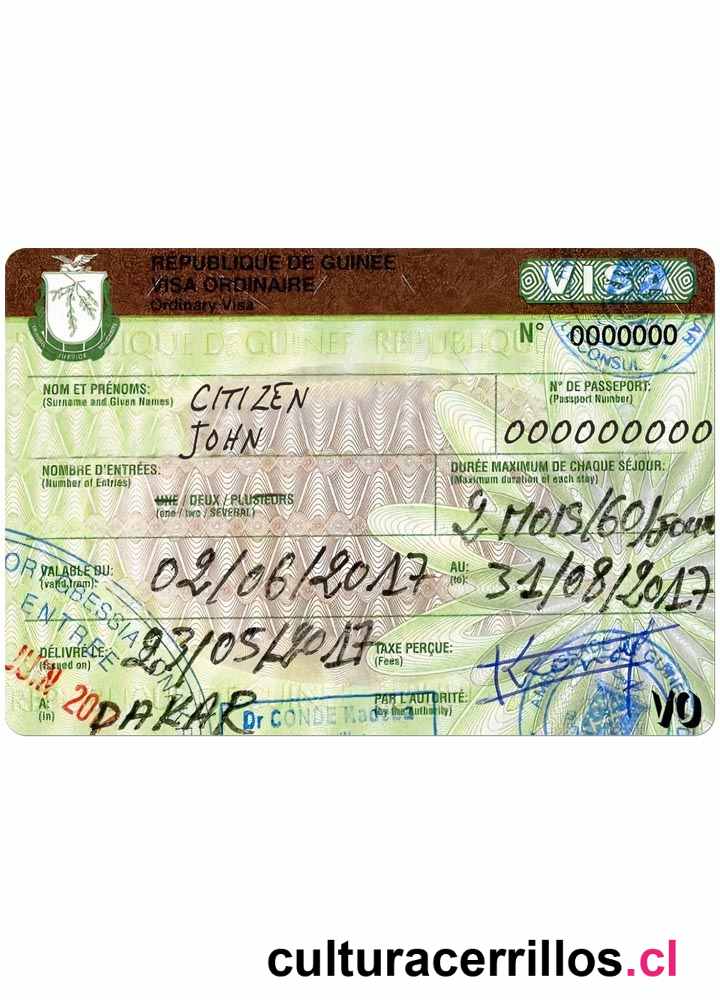 RÉPUBLIQUE DE GUINÉE
VISA ORDINAIRE
Ordinary Visa
VISA
JUSTICE
N° 0000000
CONSUL
NOM ET PRÉNOMS:
(Surname and Given Names)
CITIZEN
JOHN
N° DE PASSEPORT:
(Passport Number)
000000000
NOMBRE D'ENTRÉES:
(Number of Entries)
UNE / DEUX / PLUSIEURS
(one / two / SEVERAL)
DURÉE MAXIMUM DE CHAQUE SÉJOUR:
(Maximum duration of each stay)
2 MOIS/60/Jour
VALABLE DU:
(valid from):
02/06/2017
AU:
(to):
31/08/2017
GBESSIA
ENTRÉE
DÉLIVRÉ LE:
(Issued on)
23/05/2017
TAXE PERÇUE:
(Fees)
JUN 20
À:
(in)
DAKAR
PAR L'AUTORITÉ:
(by the Authority)
Dr CONDE
VO
culturacerrillos.cl